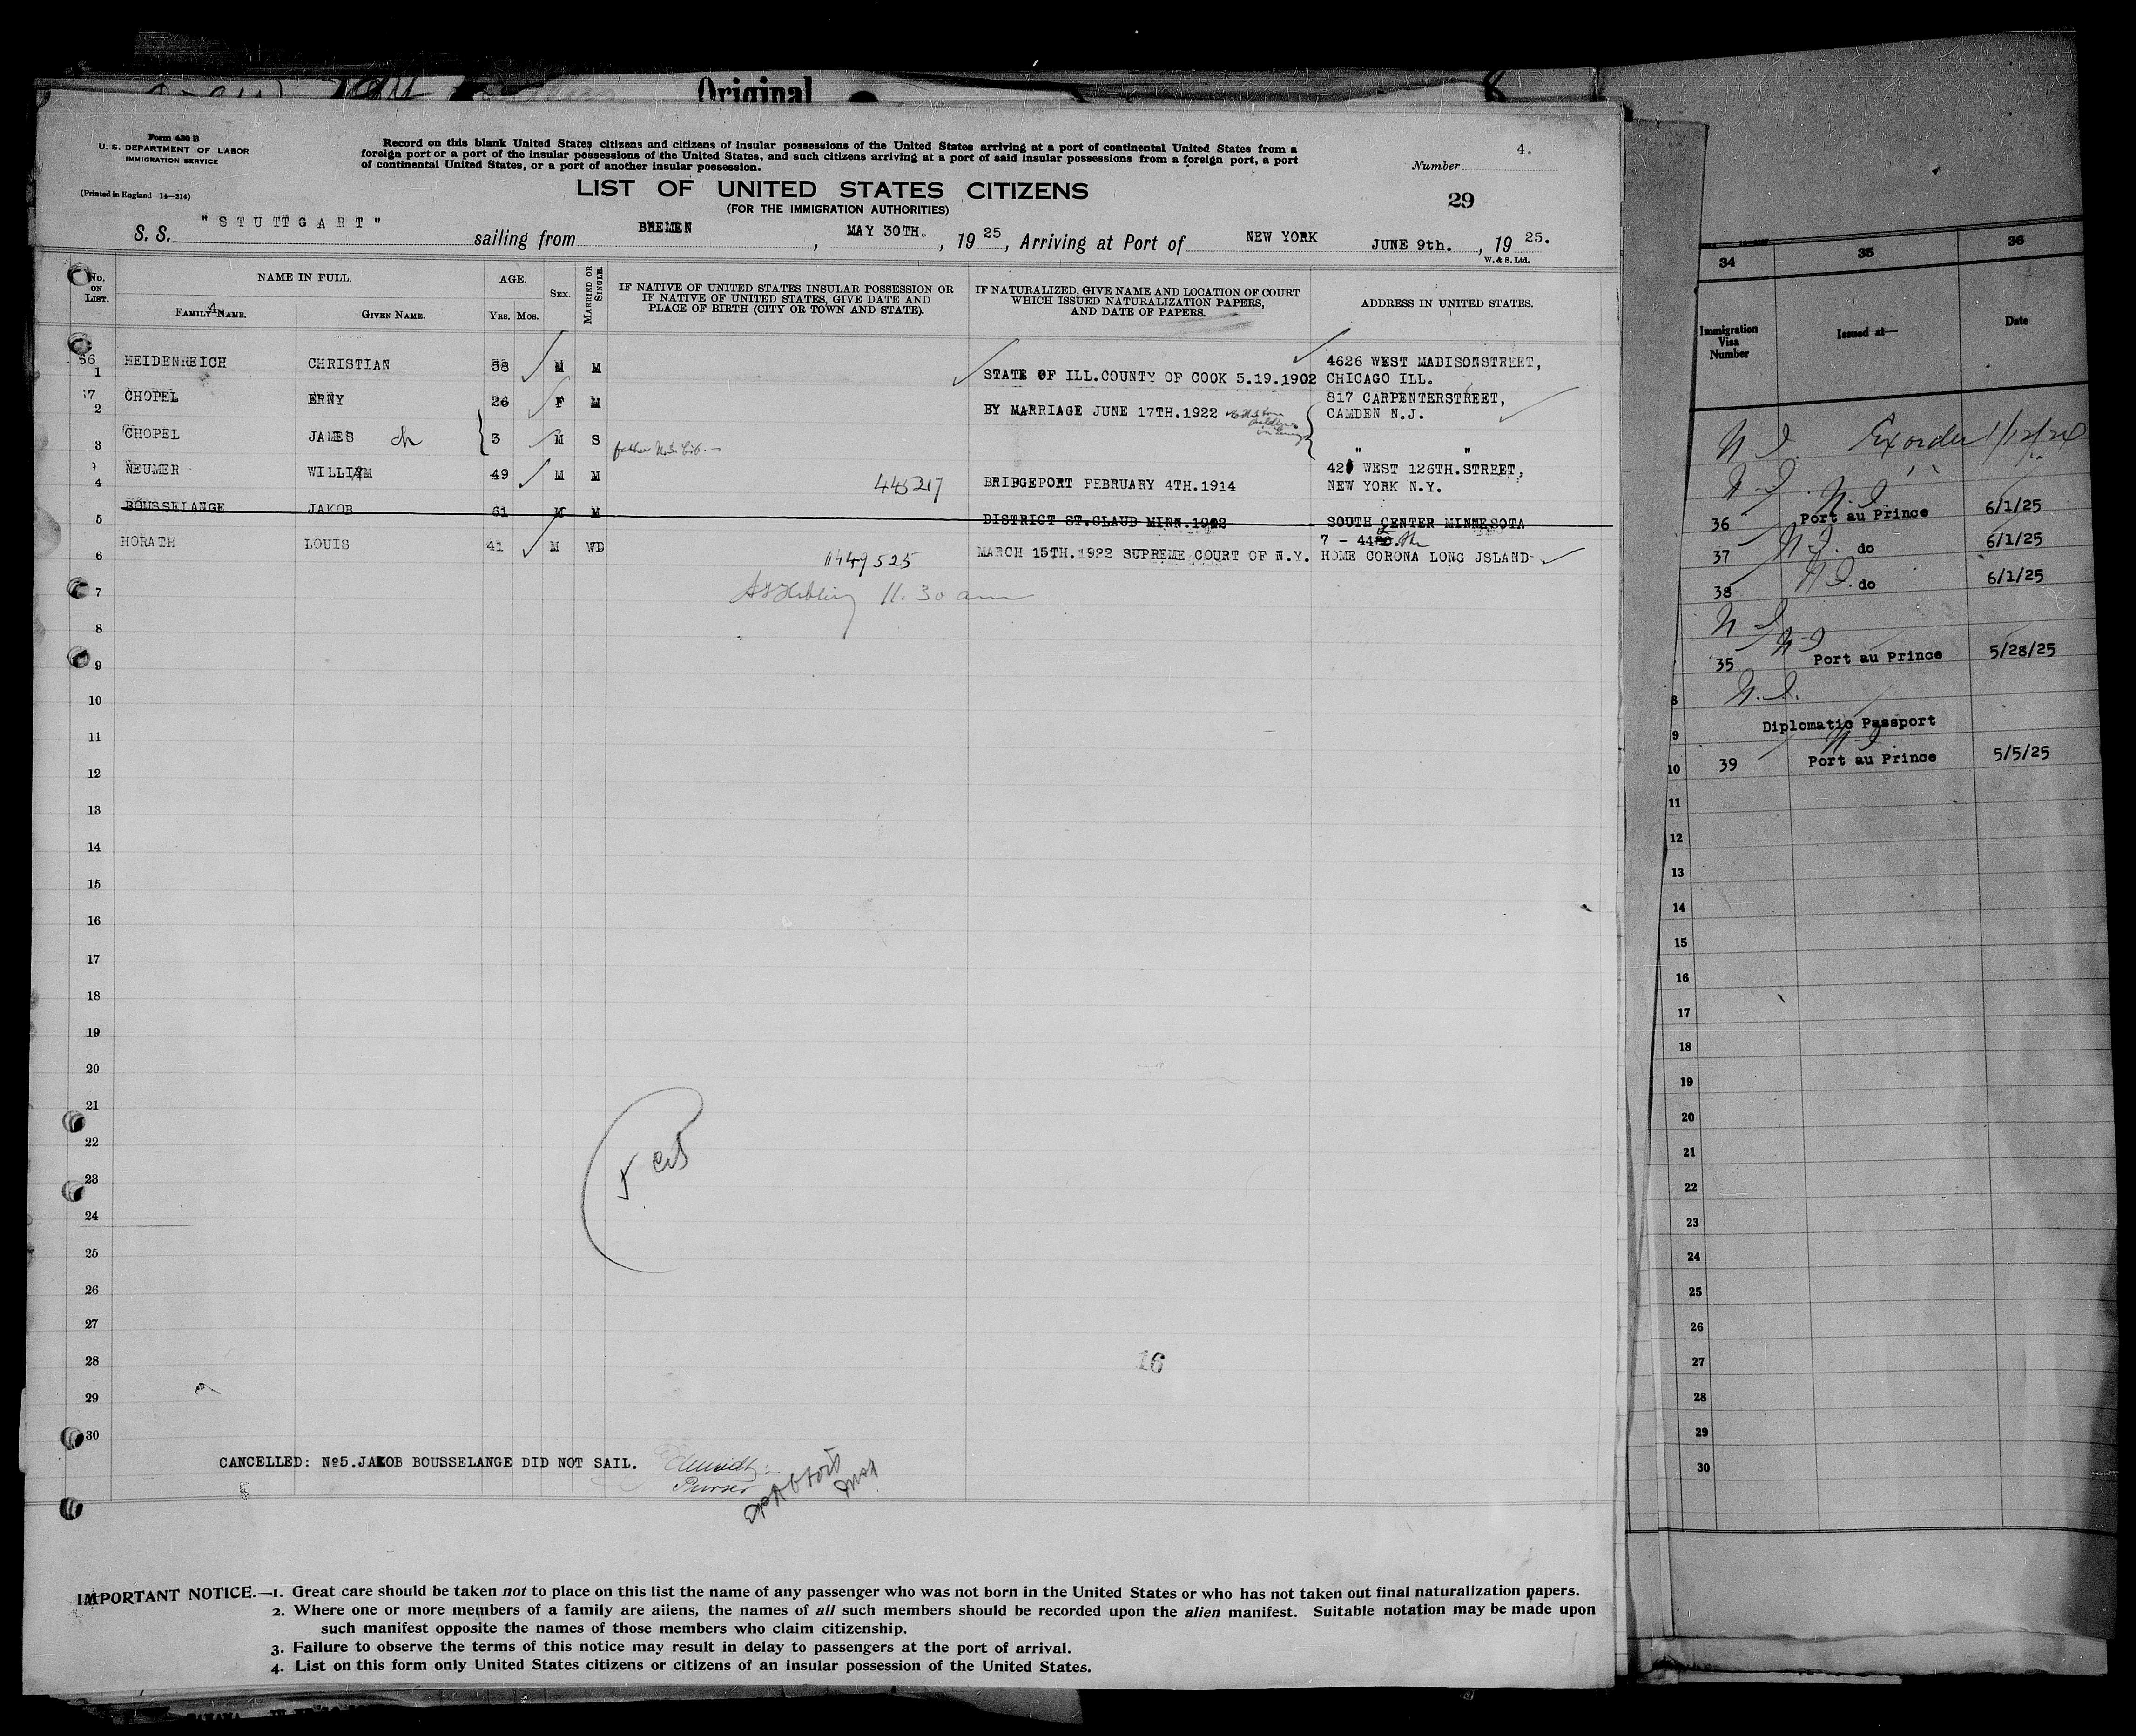 Original
8
Form 630 B
U. S. DEPARTMENT OF LABOR
IMMIGRATION SERVICE
(Printed in England 14—214)
Record on this blank United States citizens and citizens of insular possessions of the United States arriving at a port of continental United States from a
foreign port or a port of the insular possessions of the United States, and such citizens arriving at a port of said insular possessions from a foreign port, a port
of continental United States, or a port of another insular possession.
Number 4.
LIST OF UNITED STATES CITIZENS
(FOR THE IMMIGRATION AUTHORITIES)
29
S. S. "STUTTGART" sailing from BREMEN, MAY 30TH., 19 25, Arriving at Port of NEW YORK JUNE 9th., 19 25.
W. & S. Ltd.
No. ON LIST. NAME IN FULL. AGE. SEX. MARRIED OR SINGLE. IF NATIVE OF UNITED STATES INSULAR POSSESSION OR IF NATIVE OF UNITED STATES, GIVE DATE AND PLACE OF BIRTH (CITY OR TOWN AND STATE). IF NATURALIZED, GIVE NAME AND LOCATION OF COURT WHICH ISSUED NATURALIZATION PAPERS, AND DATE OF PAPERS. ADDRESS IN UNITED STATES.
FAMILY NAME. GIVEN NAME. YRS. MOS.
1 HEIDENREICH CHRISTIAN 58 M M STATE OF ILL.COUNTY OF COOK 5.19.1902 4626 WEST MADISONSTREET,
CHICAGO ILL.
2 CHOPEL ERNY 26 F M BY MARRIAGE JUNE 17TH.1922 817 CARPENTERSTREET,
CAMDEN N.J.
3 CHOPEL JAMES ch 3 M S father U.S. Cit. " "
4 NEUMER WILLIAM 49 M M 445217 BRIDGEPORT FEBRUARY 4TH.1914 42 WEST 126TH.STREET,
NEW YORK N.Y.
5 BOUSSELANGE JAKOB 61 M M DISTRICT ST.CLAUD MINN.1902 SOUTH CENTER MINNESOTA
6 HORATH LOUIS 41 M WD 1449525 MARCH 15TH.1922 SUPREME COURT OF N.Y. 7 - 44
HOME CORONA LONG JSLAND
7 11.30 am
8
9
10
11
12
13
14
15
16
17
18
19
20
21
22
23
24
25
26
27
28
29
30
5 cit
16
CANCELLED: No5.JAKOB BOUSSELANGE DID NOT SAIL.
Purser
IMPORTANT NOTICE.—1. Great care should be taken not to place on this list the name of any passenger who was not born in the United States or who has not taken out final naturalization papers.
2. Where one or more members of a family are aliens, the names of all such members should be recorded upon the alien manifest. Suitable notation may be made upon
such manifest opposite the names of those members who claim citizenship.
3. Failure to observe the terms of this notice may result in delay to passengers at the port of arrival.
4. List on this form only United States citizens or citizens of an insular possession of the United States.
34 35 36
Immigration Visa Number Issued at— Date
N.I. Ex order 1/12/24
N-I
36 N-I Port au Prince 6/1/25
37 N I. do 6/1/25
38 N I. do 6/1/25
N-I
35 N-I Port au Prince 5/28/25
8 N.I.
9 Diplomatic Passport
10 39 N-I Port au Prince 5/5/25
11
12
13
14
15
16
17
18
19
20
21
22
23
24
25
26
27
28
29
30